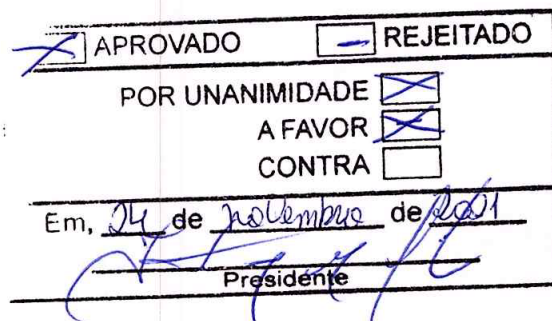 APROVADO REJEITADO
POR UNANIMIDADE
A FAVOR
CONTRA
Em, 24 de novembro de
Presidente